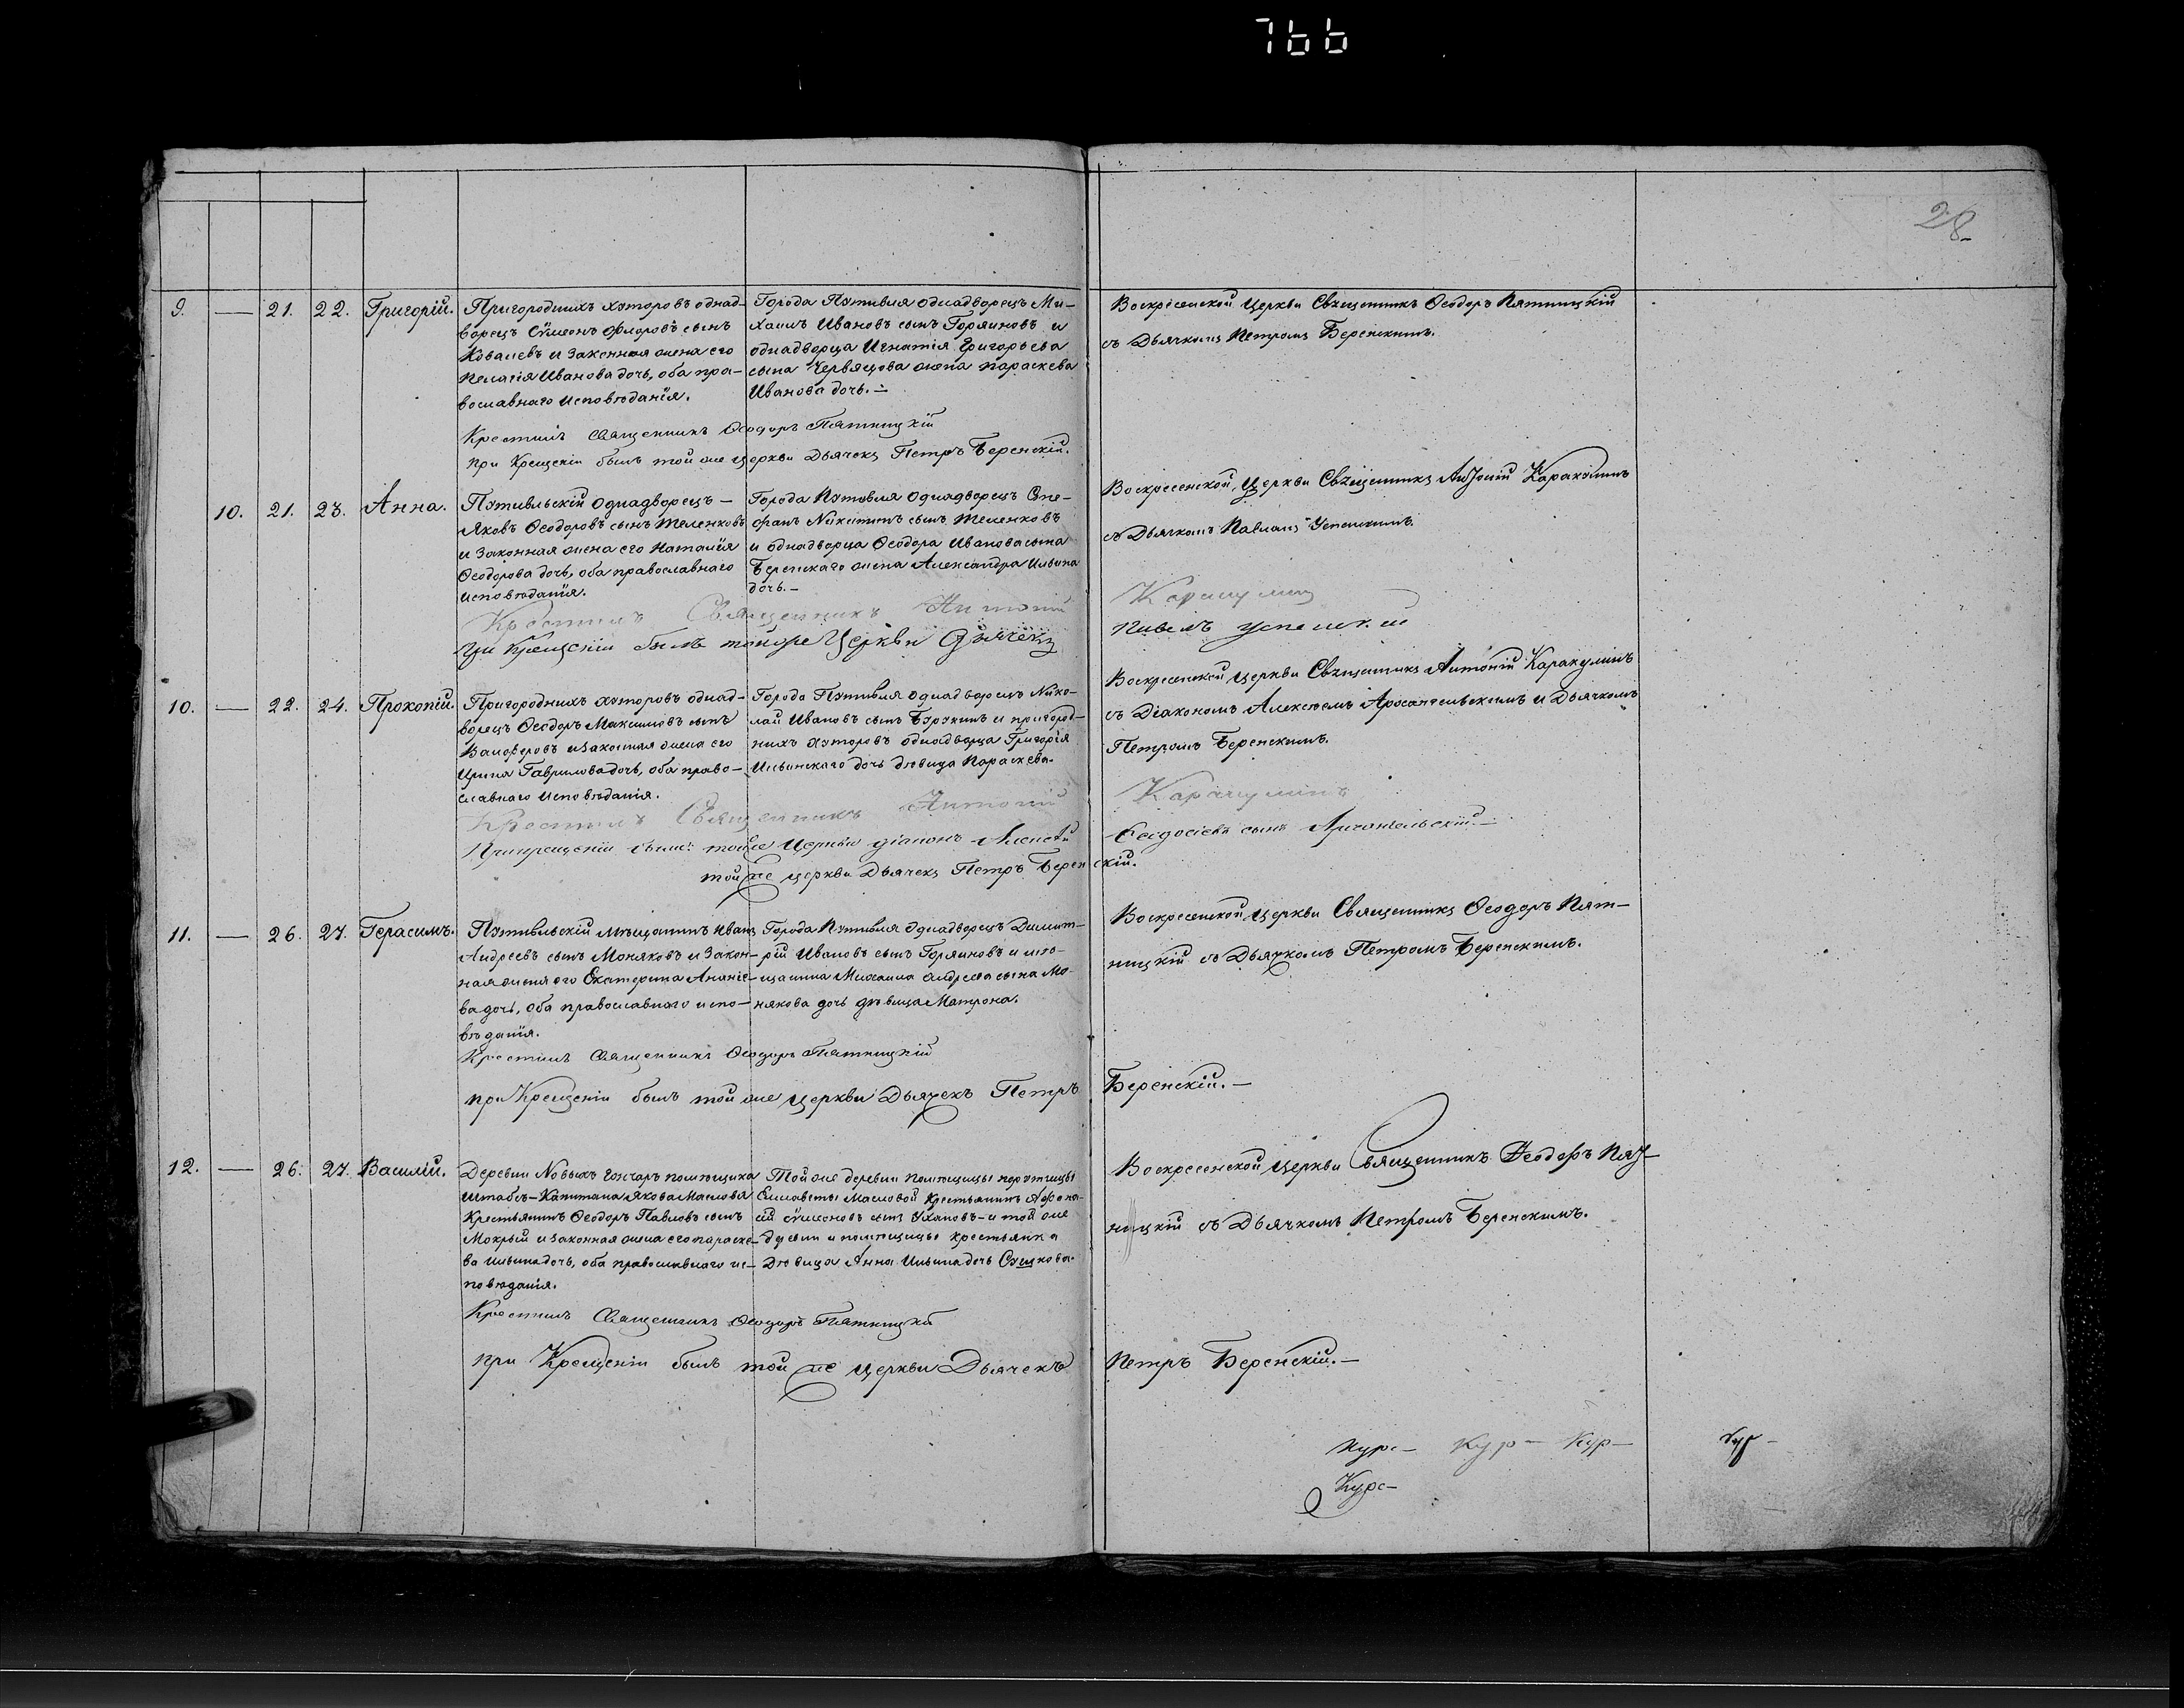 766
28
9. — 21. 22. Григорій.
Пригородныхъ хуторовъ однад-
ворецъ Сѵмеонъ Флоровъ сынъ
Ковалевъ и законная жена его
Пелагія Иванова дочь, оба пра-
вославнаго исповѣданія.
Города Путивля однадворецъ Ми-
хаилъ Ивановъ сынъ Горяиновъ и
однадворца Игнатія Григорьева
сына Червяцова жена Параскева
Иванова дочь.—
Воскресенской Церкви Священникъ Ѳеодоръ Пятницкій
съ Дьячкомъ Петромъ Беренскимъ.
Крестилъ Священникъ Ѳеодоръ Пятницкій
при Крещеніи былъ той же церкви Дьячекъ Петръ Беренскій.
10. 21. 23. Анна.
Путивльскій однадворецъ —
Яковъ Ѳеодоровъ сынъ Теленковъ
и законная жена его Наталія
Ѳеодорова дочь, оба православнаго
исповѣданія.
Города Путивля однадворецъ Сте-
фанъ Никитинъ сынъ Теленковъ
и однадворца Ѳеодора Иванова сына
Беренскаго жена Александра Ильина
дочь.—
Воскресенской Церкви Священникъ Антоній Каракулинъ
съ Дьячкомъ Павломъ Успенскимъ.
Крестилъ Священникъ Антоній Каракулинъ
При Крещеніи былъ тойже Церкви Дьячекъ Павелъ Успенскій
10. — 22. 24. Прокопій.
Пригородныхъ хуторовъ однад-
ворецъ Ѳеодоръ Максимовъ сынъ
и законная жена его
Ирина Гаврилова дочь, оба право-
славнаго исповѣданія.
Города Путивля однадворецъ Нико-
лай Ивановъ сынъ и пригород-
ныхъ хуторовъ однадворца Григорія
Ильинскаго дочь дѣвица Параскева.
Воскресенской Церкви Священникъ Антоній Каракулинъ
съ Діакономъ Алексѣемъ Архангельскимъ и Дьячкомъ
Петромъ Беренскимъ.
Крестилъ Священникъ Антоній Каракулинъ
При крещеніи были: тойже Церкви діаконъ Алексѣй Ѳеодосіевъ сынъ Архангельскій.—
той же церкви Дьячекъ Петръ Беренскій.
11. — 26. 27. Герасимъ.
Путивльскій мѣщанинъ Иванъ
Андреевъ сынъ Моняковъ и закон-
ная жена его Екатерина Ананіе-
ва дочь, оба православнаго испо-
вѣданія.
Города Путивля однадворецъ Димит-
рій Ивановъ сынъ Горяиновъ и мѣ-
щанина Михаила Андреева сына Мо-
някова дочь дѣвица Матрона.
Воскресенской Церкви Священникъ Ѳеодоръ Пят-
ницкій съ Дьячкомъ Петромъ Беренскимъ.
Крестилъ Священникъ Ѳеодоръ Пятницкій
при Крещеніи былъ той же церкви Дьячекъ Петръ Беренскій.—
12. — 26. 27. Василій.
Деревни Новыхъ Гончаръ помѣщика
Штабсъ-Капитана Якова Маслова
Крестьянинъ Ѳеодоръ Павловъ сынъ
Мокрый и законная жена его Параске-
ва Ильина дочь, оба православнаго ис-
повѣданія.
Той же деревни помѣщицы порутчицы
Елисаветы Масловой Крестьянинъ Афона-
сій Сѵмеоновъ сынъ Ухановъ и той же
деревни и помѣщицы крестьянка
Дѣвица Анна Ильина дочь Сушкова.
Воскресенской Церкви Священникъ Ѳеодоръ Пят-
ницкій съ Дьячкомъ Петромъ Беренскимъ.
Крестилъ Священникъ Ѳеодоръ Пятницкій
при Крещеніи былъ той же церкви Дьячекъ Петръ Беренскій.—
Кур- Кур- Кур-
Курс-